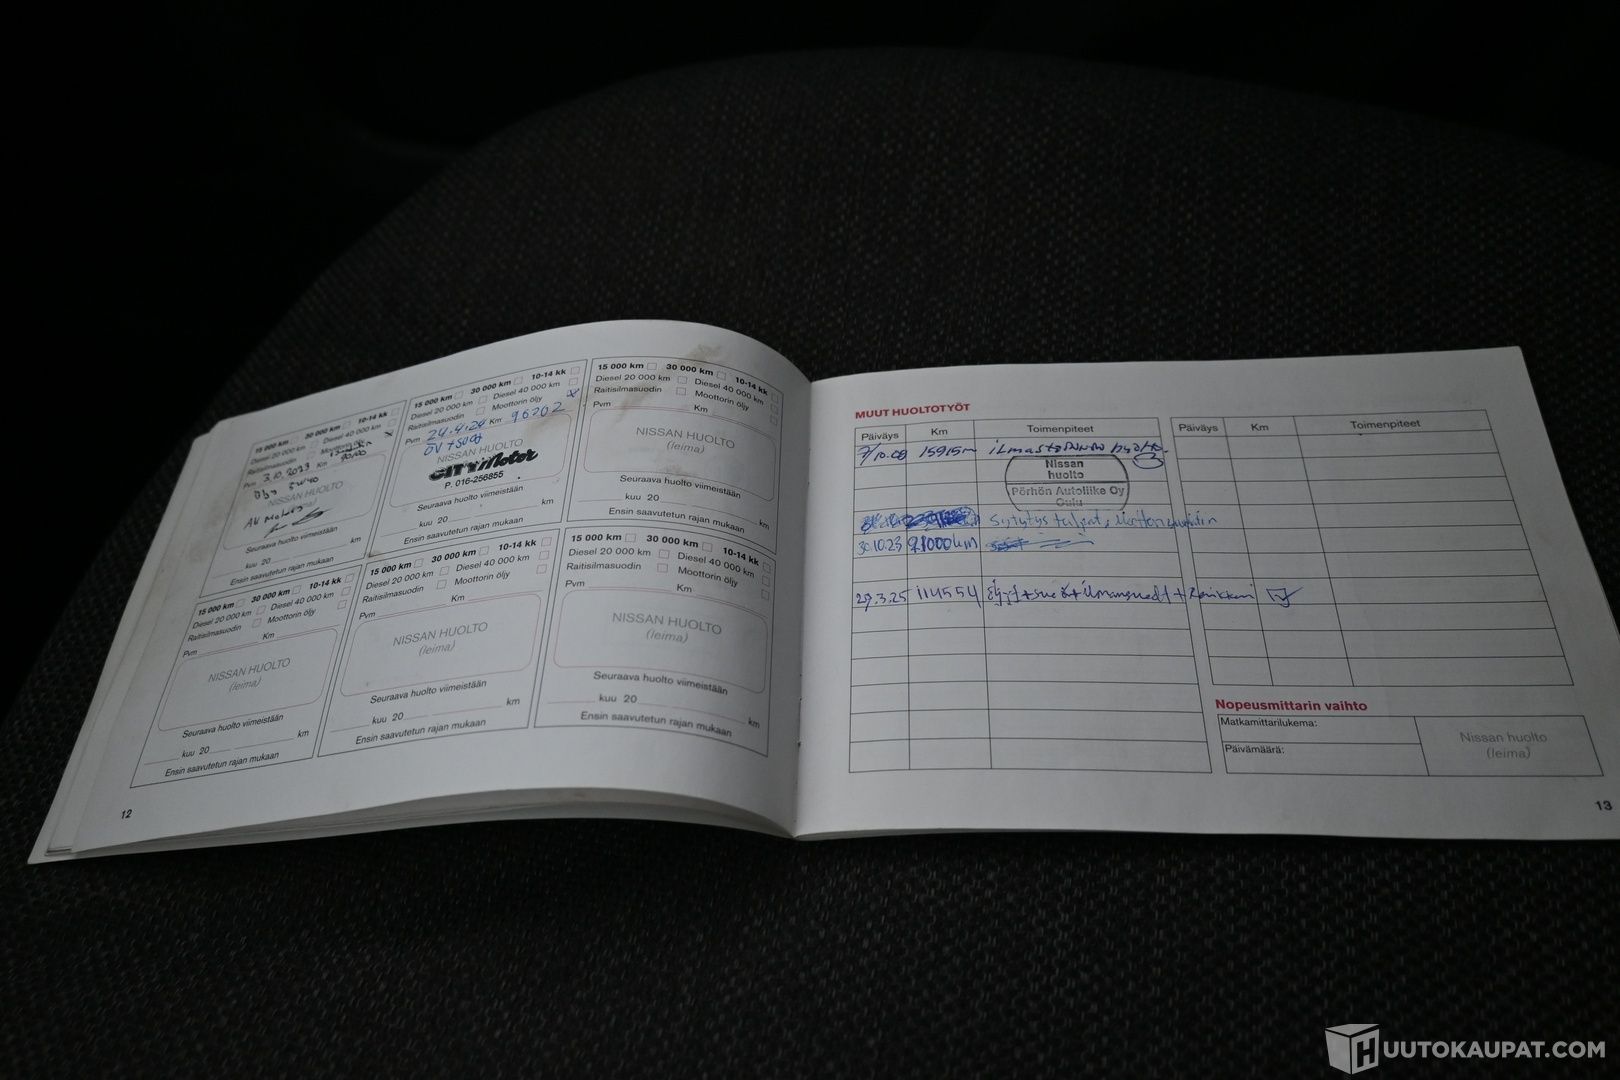 15 000 km 30 000 km 10-14 kk
Diesel 20 000 km Diesel 40 000 km
Raitisilmasuodin Moottorin
Pvm 3.10.2023 Km
5W40
NISSAN HUOLTO
Seuraava huolto viimeistään
kuu 20 km
Ensin saavutetun rajan mukaan
15 000 km 30 000 km 10-14 kk
Diesel 20 000 km Diesel 40 000 km
Raitisilmasuodin Moottorin öljy
Pvm 24.4.24 Km 96202
NISSAN HUOLTO
CITY Motor
P. 016-256855
Seuraava huolto viimeistään
kuu 20 km
Ensin saavutetun rajan mukaan
15 000 km 30 000 km 10-14 kk
Diesel 20 000 km Diesel 40 000 km
Raitisilmasuodin Moottorin öljy
Pvm Km
NISSAN HUOLTO
(leima)
Seuraava huolto viimeistään
kuu 20 km
Ensin saavutetun rajan mukaan
15 000 km 30 000 km 10-14 kk
Diesel 20 000 km Diesel 40 000 km
Raitisilmasuodin Moottorin öljy
Pvm Km
NISSAN HUOLTO
(leima)
Seuraava huolto viimeistään
kuu 20 km
Ensin saavutetun rajan mukaan
15 000 km 30 000 km 10-14 kk
Diesel 20 000 km Diesel 40 000 km
Raitisilmasuodin Moottorin öljy
Pvm Km
NISSAN HUOLTO
(leima)
Seuraava huolto viimeistään
kuu 20 km
Ensin saavutetun rajan mukaan
15 000 km 30 000 km 10-14 kk
Diesel 20 000 km Diesel 40 000 km
Raitisilmasuodin Moottorin öljy
Pvm Km
NISSAN HUOLTO
(leima)
Seuraava huolto viimeistään
kuu 20 km
Ensin saavutetun rajan mukaan
12
MUUT HUOLTOTYÖT
Päiväys Km Toimenpiteet Päiväys Km Toimenpiteet
7/10.08 15915
Nissan
huolto
Pörhön Autoliike Oy
Oulu
Sytytys tulpat,
30.10.23 91000km
29.3.25 114554
Nopeusmittarin vaihto
Matkamittarilukema:
Päivämäärä:
Nissan huolto
(leima)
13
HUUTOKAUPAT.COM